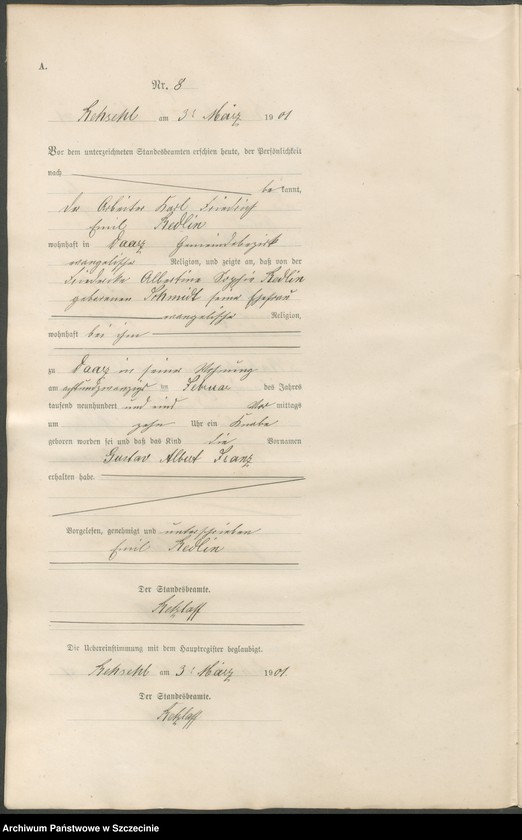 A.
Nr. 8
Rehsehl am 3ᵗ März 1901
Vor dem unterzeichneten Standesbeamten erschien heute, der Persönlichkeit
nach
bekannt,
der Arbeiter Karl Friedrich
Emil Redlin
wohnhaft in Daarz Gemeindebezirk
evangelischer Religion, und zeigte an, daß von der
Friedericke Albertine Sophie Redlin
geborenen Schmidt seine Ehefrau
evangelischer Religion,
wohnhaft bei ihm
zu Daarz in seiner Wohnung
am achtundzwanzigs ten Februar des Jahres
tausend neunhundert und eins Vor mittags
um zehn Uhr ein Knabe
geboren worden sei und daß das Kind die Vornamen
Gustav Albert Franz
erhalten habe.
Vorgelesen, genehmigt und unterschrieben
Emil Redlin
Der Standesbeamte.
Retzlaff
Die Uebereinstimmung mit dem Hauptregister beglaubigt.
Rehsehl am 3ᵗ März 1901.
Der Standesbeamte.
Retzlaff
Archiwum Państwowe w Szczecinie